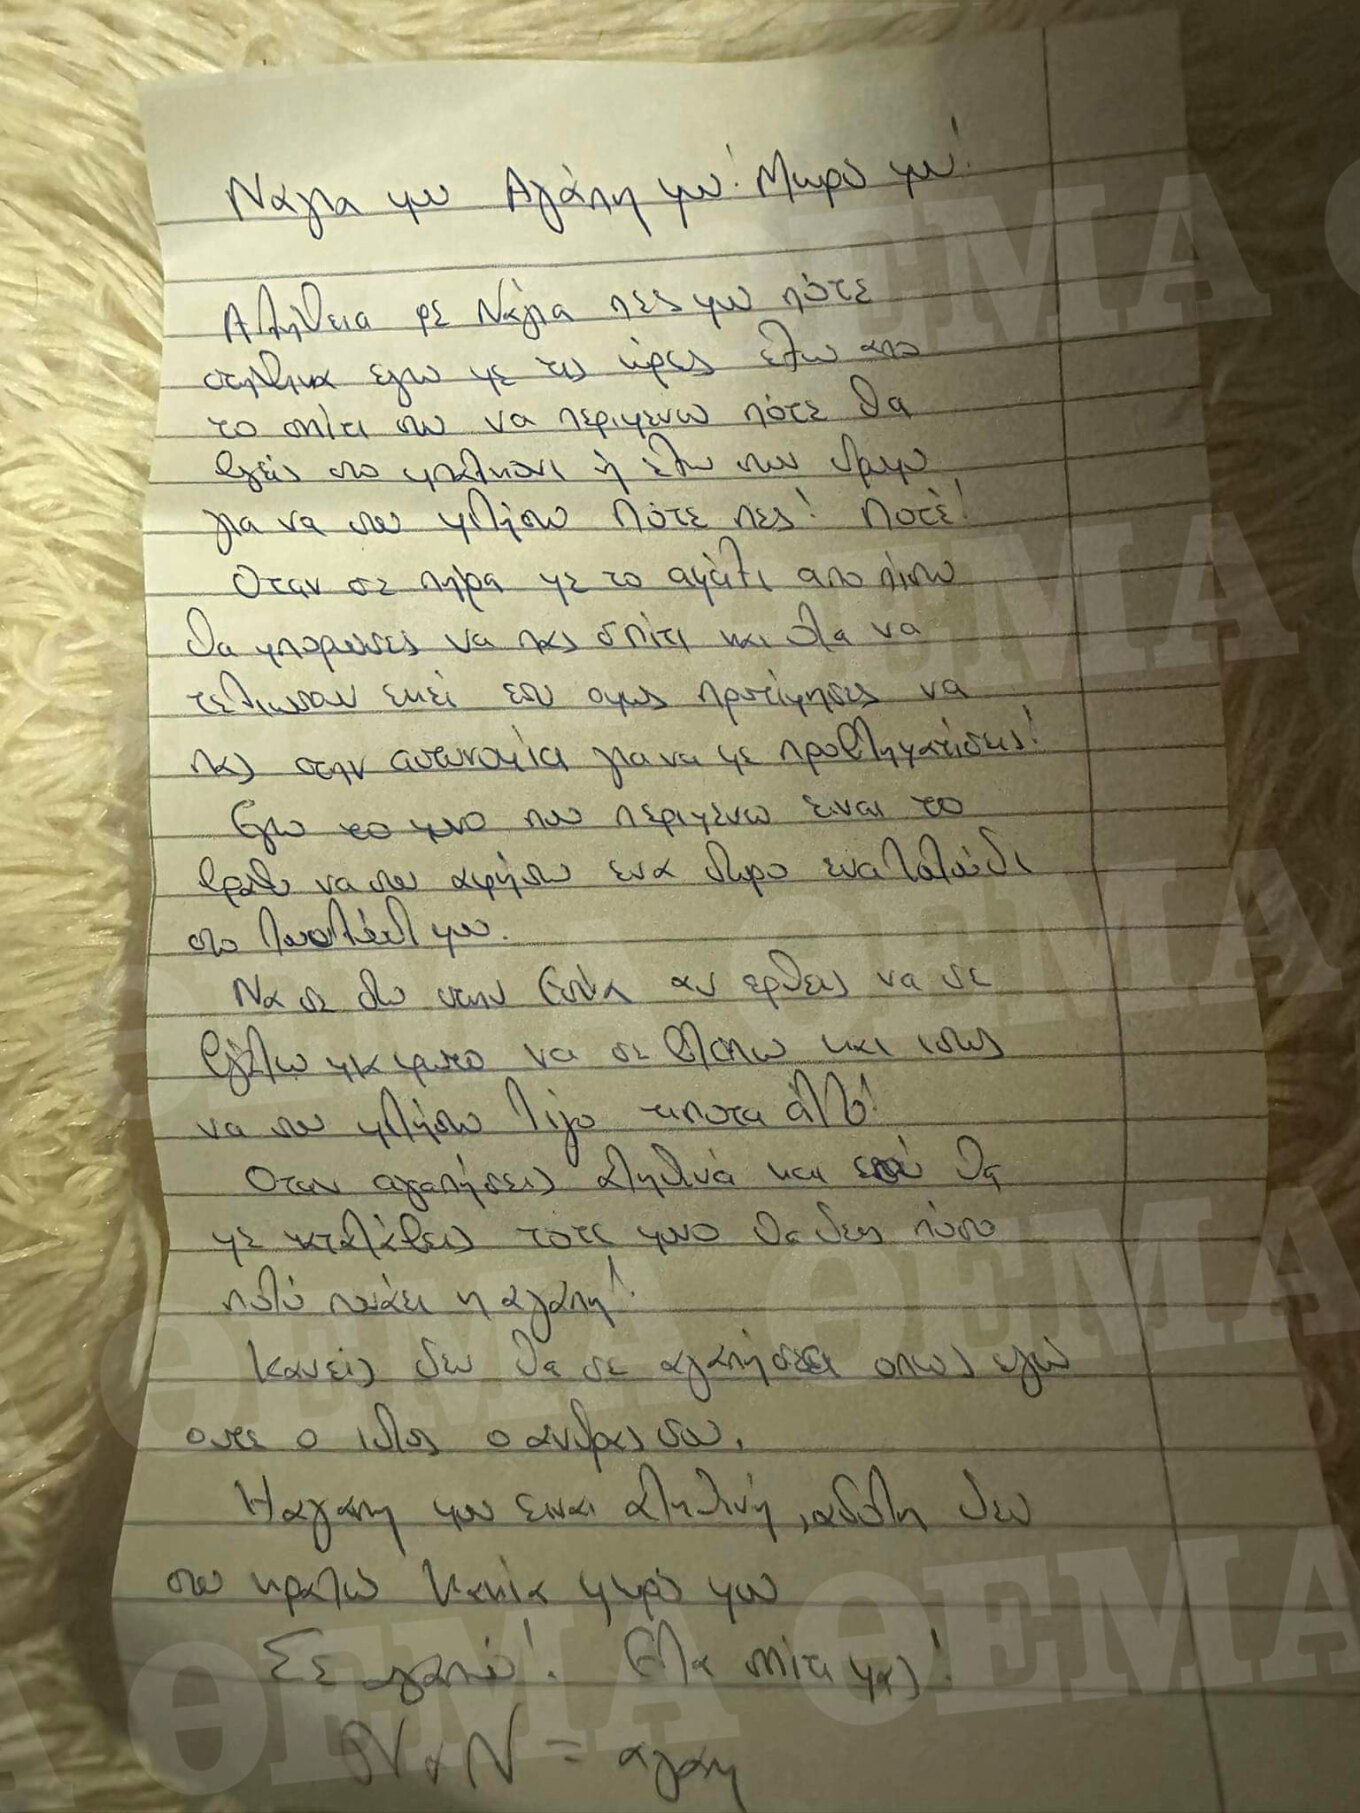 Νάγια μου Αγάπη μου! Μωρό μου!
Αλήθεια ρε Νάγια πες μου πότε
στήθηκα εγω με τις ώρες έξω απο
το σπίτι σου να περιμενω πότε θα
βγείς στο μπαλκόνι ή έξω στον δρομο
για να σου μιλήσω πότε πες! Ποτέ!
Οταν σε πήρα με το αμάξι απο πισω
θα μπορουσες να πας σπίτι και όλα να
τελιωσουν εκεί εσυ ομως προτίμησες να
πας στην αστυνομία για να με προβληματίσεις!
Εγω το μονο που περιμενω ειναι το
βραδυ να σου αφήσω ενα δωρο ενα λουλούδι
στο μου.
Να σε δω στην αν ερθεις να σε
βγάλω να σε βλεπω και ισως
να σου μιλήσω λίγο τιποτα άλλο!
Οταν αγαπήσεις αληθινά και εσύ θα
με καταλάβεις τοτε μονο θα δεις πόσο
πολύ πονάει η αγάπη!
Κανείς δεν θα σε αγαπήσει οπως εγώ
ουτε ο ιδιος ο ανδρας σου.
Η αγαπη μου ειναι αληθινή, αδολη δεν
σου κρατω κακία μωρό μου
Σε αγαπώ! Ελα σπίτι μας!
Ν x Ν = αγάπη
ΘΕΜΑ
ΘΕΜΑ
ΘΕΜΑ ΘΕΜΑ
ΘΕΜΑ ΘΕΜΑ
ΘΕΜΑ ΘΕΜΑ